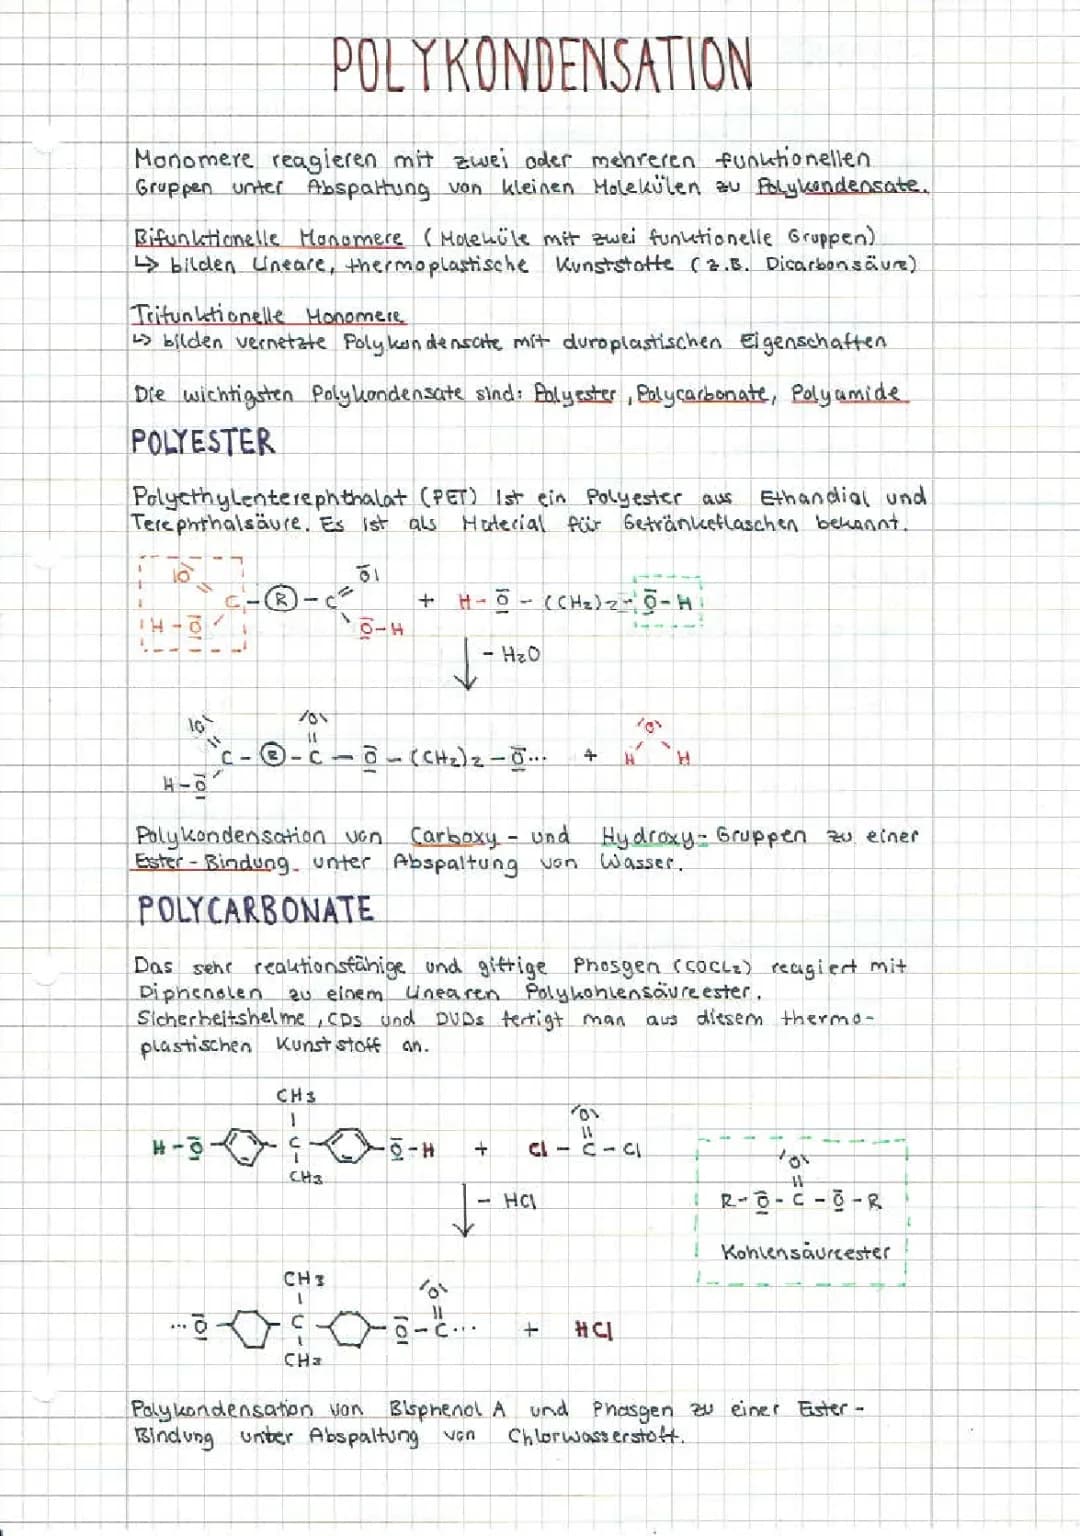 POLYKONDENSATION
Monomere reagieren mit zwei oder mehreren funktionellen
Gruppen unter Abspaltung von kleinen Molekülen zu Polykondensate.
Bifunktionelle Monomere (Moleküle mit zwei funktionelle Gruppen)
↳ bilden lineare, thermoplastische Kunststoffe (z.B. Dicarbonsäure)
Trifunktionelle Monomere
↳ bilden vernetzte Polykondensate mit duroplastischen Eigenschaften
Die wichtigsten Polykondensate sind: Polyester, Polycarbonate, Polyamide
POLYESTER
Polyethylenterephthalat (PET) ist ein Polyester aus Ethandial und
Terephthalsäure. Es ist als Material für Getränkeflaschen bekannt.
|O O|
C - R - C + H - O - (CH2)2 - O - H
H - O O - H
- H2O
|O |O| |O|
C - R - C - O - (CH2)2 - O... + H H
H - O
Polykondensation von Carboxy - und Hydroxy - Gruppen zu einer
Ester - Bindung unter Abspaltung von Wasser.
POLYCARBONATE
Das sehr reaktionsfähige und giftige Phosgen (COCl2) reagiert mit
Diphenolen zu einem linearen Polykohlensäureester.
Sicherheitshelme, CDs und DVDs fertigt man aus diesem thermo-
plastischen Kunststoff an.
CH3
|O|
H - O - C - O - H + Cl - C - Cl
CH3
|O|
- HCl
R - O - C - O - R
Kohlensäureester
CH3
|O|
... O - C - O - C ... + HCl
CH3
Polykondensation von Bisphenol A und Phosgen zu einer Ester -
Bindung unter Abspaltung von Chlorwasserstoff.